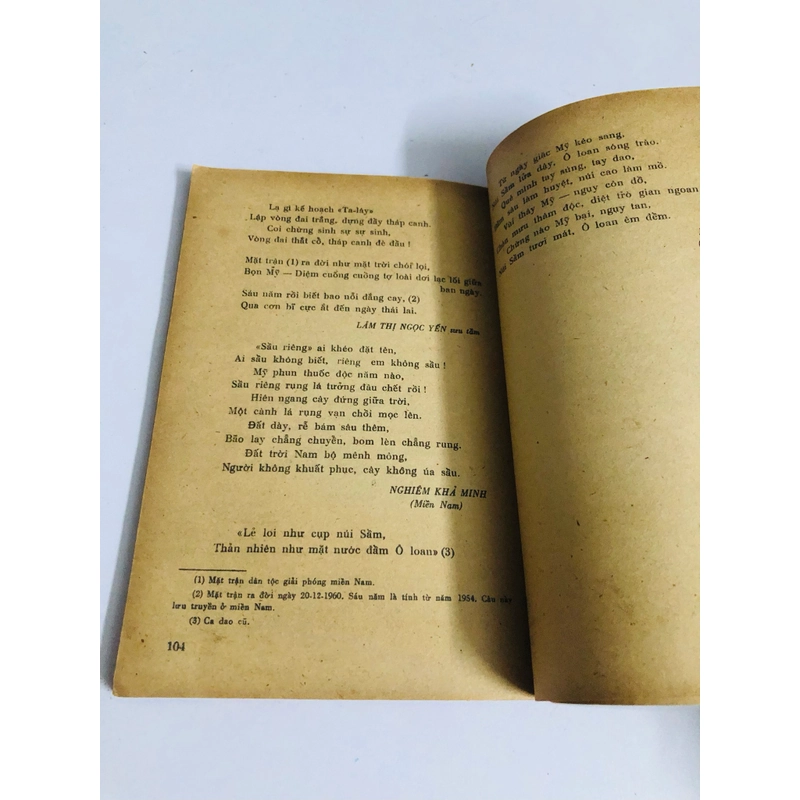 Lạ gì kế hoạch «Ta-lây»
Lập vòng đai trắng, dựng đầy tháp canh.
Coi chừng sinh sự sự sinh,
Vòng đai thắt cổ, tháp canh đè đầu !
Mặt trận (1) ra đời như mặt trời chói lọi,
Bọn Mỹ — Diệm cuống cuồng tợ loài dơi lạc lối giữa
ban ngày.
Sáu năm rồi biết bao nỗi đắng cay, (2)
Qua cơn bĩ cực ắt đến ngày thái lai.
LÂM THỊ NGỌC YẾN sưu tầm
«Sầu riêng» ai khéo đặt tên,
Ai sầu không biết, riêng em không sầu !
Mỹ phun thuốc độc năm nào,
Sầu riêng rụng lá tưởng đâu chết rồi !
Hiên ngang cây đứng giữa trời.
Một cành lá rụng vạn chồi mọc lên.
Đất dày, rễ bám sâu thêm,
Bão lay chẳng chuyển, bom lèn chẳng rung.
Đất trời Nam bộ mênh mông,
Người không khuất phục, cây không úa sầu.
NGHIÊM KHẢ MINH
(Miền Nam)
«Lẻ loi như cụp núi Sầm,
Thản nhiên như mặt nước đầm Ô loan» (3)
(1) Mặt trận dân tộc giải phóng miền Nam.
(2) Mặt trận ra đời ngày 20-12-1960. Sáu năm là tính từ năm 1954. Câu này
lưu truyền ở miền Nam.
(3) Ca dao cũ.
104
Từ ngày giặc Mỹ kéo sang,
Sầm lửa dậy, Ô loan sóng trào.
Quê mình tay súng, tay dao,
sâu làm huyệt, núi cao làm mồ.
Vùi thây Mỹ — ngụy côn đồ,
mưu thâm độc, diệt trò gian ngoan
Chừng nào Mỹ bại, ngụy tan,
Núi Sầm tươi mát, Ô loan êm đềm.